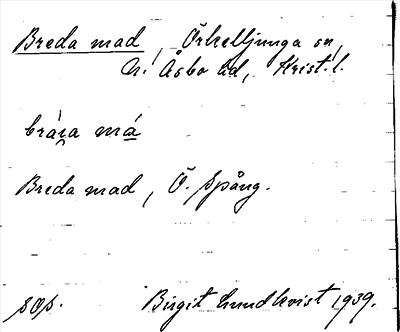 Breda mad, Örkelljunga sn,
N. Åsbo hd, Krist. l.
bräi̯a má
Breda mad, Ö. Spång.
sOs.
Birgit Lundkvist 1939.